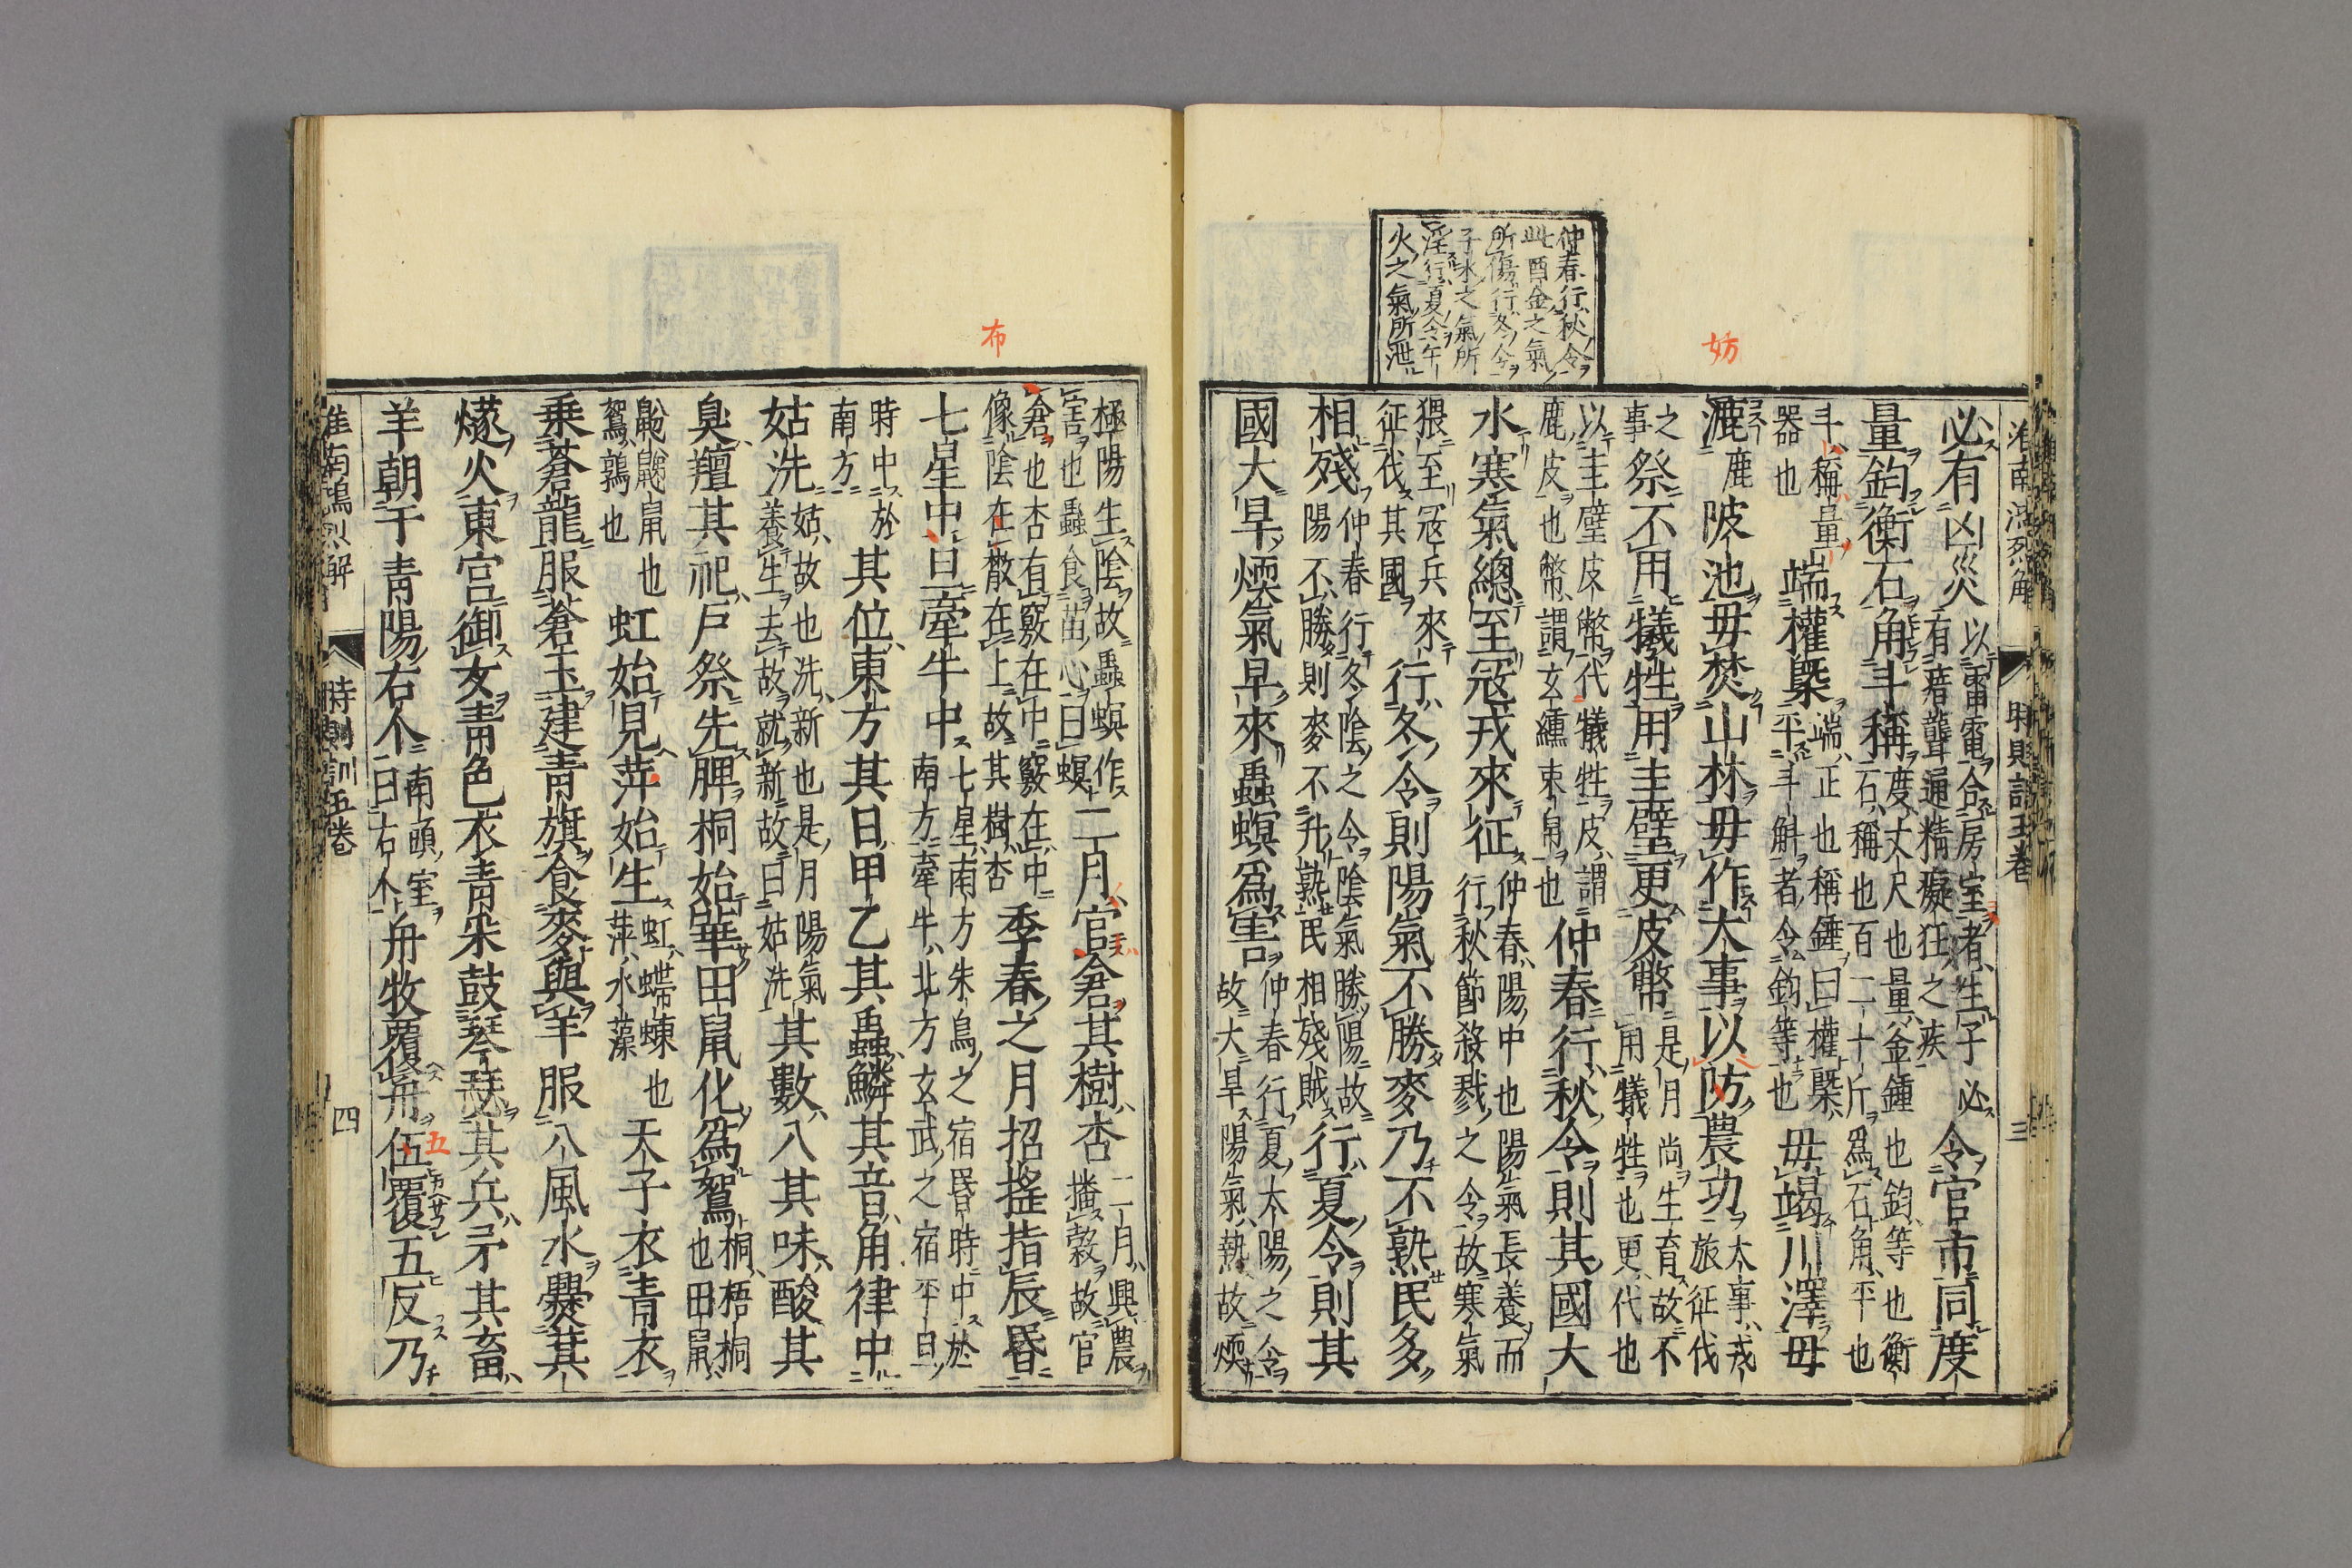 仲春行秋令
此酉金之氣
所傷行冬令
子水之氣所
淫行夏令午
火之氣所泄
妨
淮南鴻烈解
時則訓五卷
三
必有凶災以雷電合房室者生子必有瘖聾通精癡狂之疾令官市同度
量鈞衡石角斗稱度丈尺也量金鍾也鈞等也衡石稱也百二十斤爲石角平也
斗稱量器也端權槩端正也稱錘曰權槩平斗斛者令鈞等也毋竭川澤毋
漉漉陂池毋焚山林毋作大事以防農功大事戎旅征伐
之事祭不用犧牲用圭璧更皮幣是月尚生育故不用犧牲也更代也
以圭璧皮幣代犧牲皮謂鹿皮也幣謂玄纁束帛也仲春行秋令則其國大
水寒氣總至寇戎來征仲春陽中也陽氣長養而行秋節殺戮之令故寒氣
猥至寇兵來征伐其國行冬令則陽氣不勝麥乃不熟民多
相殘仲春行冬陰之令陰氣勝陽故陽不勝則麥不升熟民相殘賊行夏令則其
國大旱煗氣早來蟲螟爲害仲春行夏太陽之令故大旱陽氣熱故煗
布
極陽生陰故蟲螟作害也蟲食苗心曰螟二月官倉其樹杏二月興農播穀故官
倉也杏有竅在中竅在中像陰在散在上故其樹杏季春之月招搖指辰昏
七星中旦牽牛中七星南方朱鳥之宿昏時中於南方牽牛北方玄武之宿平旦
時中於南方其位東方其日甲乙其蟲鱗其音角律中
姑洗姑故也洗新也是月陽氣養生去故就新故曰姑洗其數八其味酸其
臭羶其祀戶祭先脾桐始華田鼠化爲鴽桐梧桐也田鼠
鼢鼢鼠也鴽鶉也虹始見萍始生虹螮蝀也萍水藻天子衣青衣
乗蒼龍服蒼玉建青旗食麥與羊服八風水爨萁
燧火東宮御女青色衣青采鼓琴瑟其兵矛其畜
羊朝于青陽右个南頭室曰右个舟牧覆舟伍覆五反乃
五
淮南鴻烈解
時則訓五卷
四